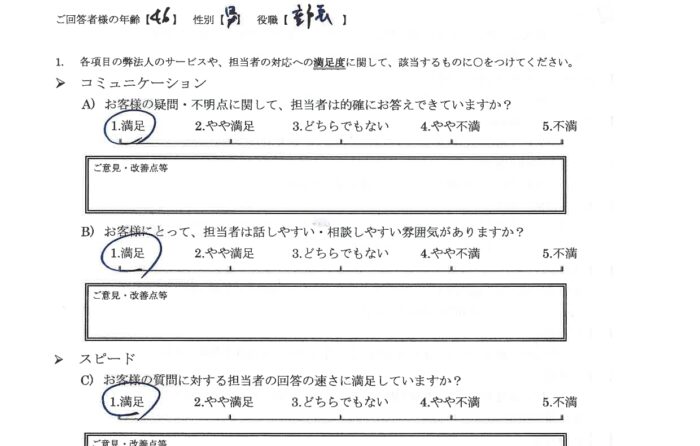 ご回答者様の年齢【46】 性別【男】 役職【部長】
1. 各項目の弊法人のサービスや、担当者の対応への満足度に関して、該当するものに○をつけてください。
➢ コミュニケーション
A) お客様の疑問・不明点に関して、担当者は的確にお答えできていますか？
1.満足 2.やや満足 3.どちらでもない 4.やや不満 5.不満
ご意見・改善点等
B) お客様にとって、担当者は話しやすい・相談しやすい雰囲気がありますか？
1.満足 2.やや満足 3.どちらでもない 4.やや不満 5.不満
ご意見・改善点等
➢ スピード
C) お客様の質問に対する担当者の回答の速さに満足していますか？
1.満足 2.やや満足 3.どちらでもない 4.やや不満 5.不満
ご意見・改善点等